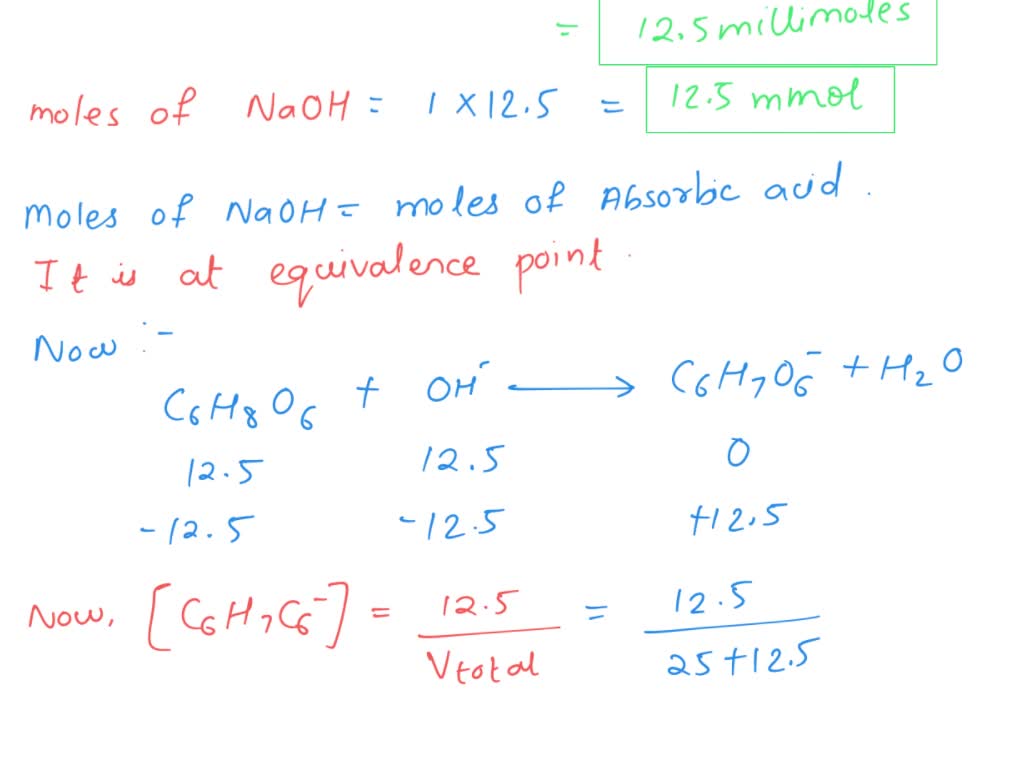 = 12.5 millimoles
moles of NaOH = 1 × 12.5 = 12.5 mmol
Moles of NaOH = moles of Absorbic acid.
It is at equivalence point.
Now :-
C₆H₈O₆ + OH⁻ ⟶ C₆H₇O₆⁻ + H₂O
12.5 12.5 0
-12.5 -12.5 +12.5
Now, [C₆H₇C₆⁻] = 12.5 / Vtotal = 12.5 / 25+12.5